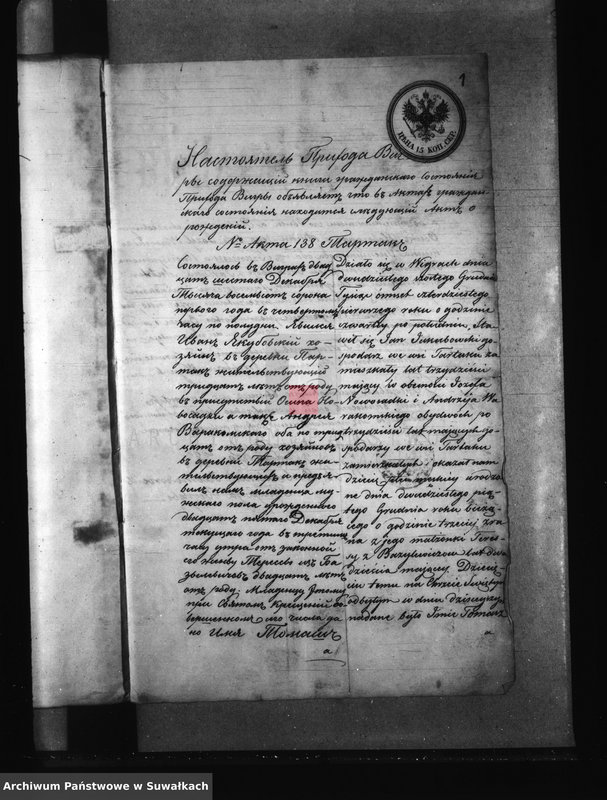 1
ЦѢНА 15 КОП. СЕР.
Настоятель Прихода
содержащій книги гражданскаго состоянія
Прихода Вигры объявляетъ что въ Актахъ граждан-
скаго состоянія находится слѣдующій Актъ о
рожденій.
№ Акта 138 Тартакъ
Состоялось въ Виграхъ двад
цать шестаго Декабря
Тысяча восемьсотъ сорокъ
перваго года въ четвертомъ
часу по полудни. Явился
Иванъ Якубовскій хо-
зяинъ въ деревни Тар-
такъ жительствующій
тридцать лѣтъ отъ роду
въ присутствіи Осипа Но-
восадки а такъ Андрея
Варакомскаго оба по трид
цать отъ роду хозяйновъ
въ деревни Тартакъ жи-
тельствующихъ и предъя
вилъ намъ младенца му-
жескаго пола рожденнаго
двадцать пятаго Декабря
текущаго года въ третьимъ
часу утра отъ законной
его жены Тересы изъ Ба
зылевичовъ двадцать лѣтъ
отъ роду. Младенцу этому
при Святомъ Крещеніи со
вершенномъ сего числа да
но имя Томашъ
Działo się w Wigrach dnia
dwudziestego szóstego Grudnia
Tysiąc ośmset czterdziestego
pierwszego roku o godzinie
czwartej po południu. Sta
wił się Jan Jakubowski go-
spodarz we wsi Tartaku za
mieszkały lat trzydzieści
mający w obecności Józefa
Nowosadki i Andrzeja Wa
rakomskiego obydwóch po
trzydzieści lat mających go-
spodarzy we wsi Tartaku
zamieszkałych i okazał nam
dziecię płci męskiej urodzo
ne dnia dwudziestego pią-
tego Grudnia roku bieżą-
cego o godzinie trzeciej zra
na z jego małżonki Teres-
sy z Bazylewiczów lat dwa
dzieścia mającej. Dziecię-
ciu temu na Chrzcie Świętym
odbytym w dniu dzisiejszym
nadane było Imie Tomasz
Archiwum Państwowe w Suwałkach